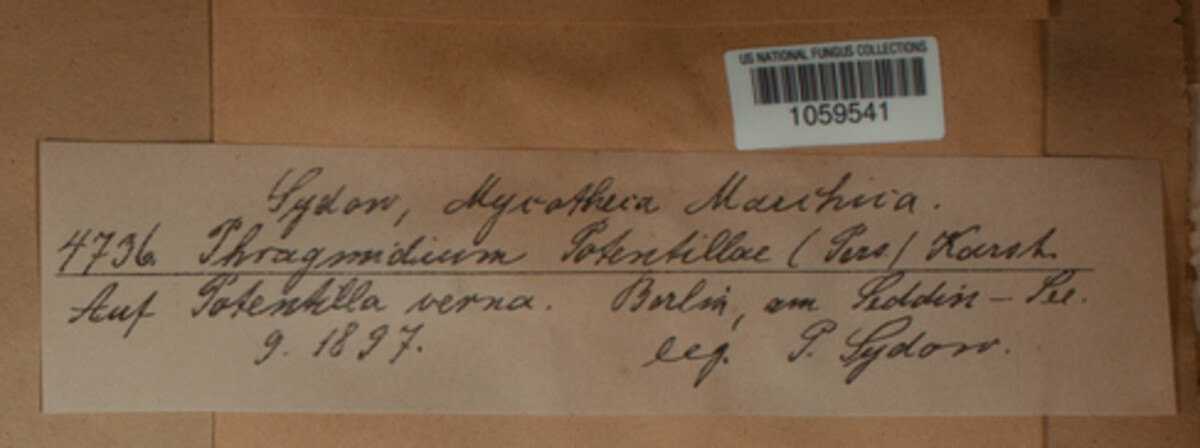 US NATIONAL FUNGUS COLLECTIONS
1059541
Sydow, Mycotheca Marchica.
4736. Phragmidium Potentillae (Pers.) Karst.
Auf Potentilla verna. Berlin, am Seddin-See.
9. 1897. leg. P. Sydow.